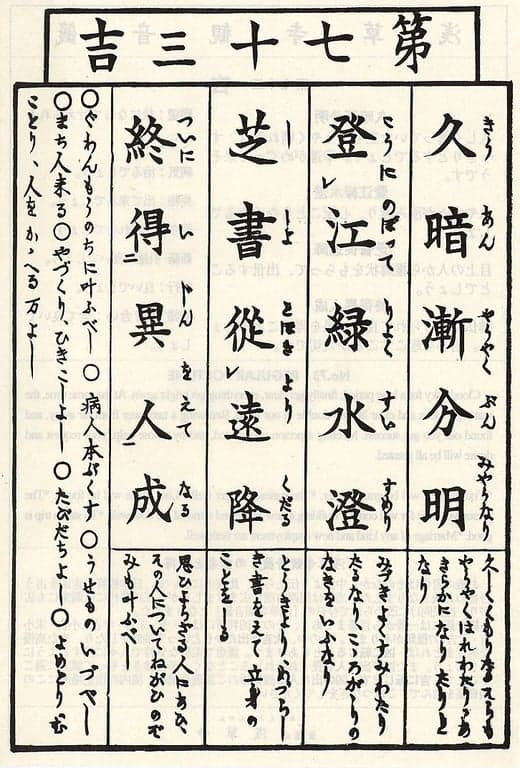 第七十三吉
久暗漸分明
きうあんやうやくぶんみやうなり
登レ江緑水澄
こうにのぼつてりよくすいすめり
芝書從レ遠降
ししよとほきよりくだる
終得二異人一成
ついにいじんをえてなる
やうやくはれわたり、あ
きらかになりたりと
なり
みづきよくすみわたり
たるなり、こころがかりの
なきをいふなり
き書をえて立身の
ことをする
思ひよらざる人にあひ、
その人についてねがひのぞ
みも叶ふべし
〇ぐわんもうのちに叶ふべし〇病人本ぷくす〇うせものいづべし
〇まち人来る〇やづくり、ひきこしよし〇たびだちよし〇よめとりむ
ことり、人をかゝへる万よし